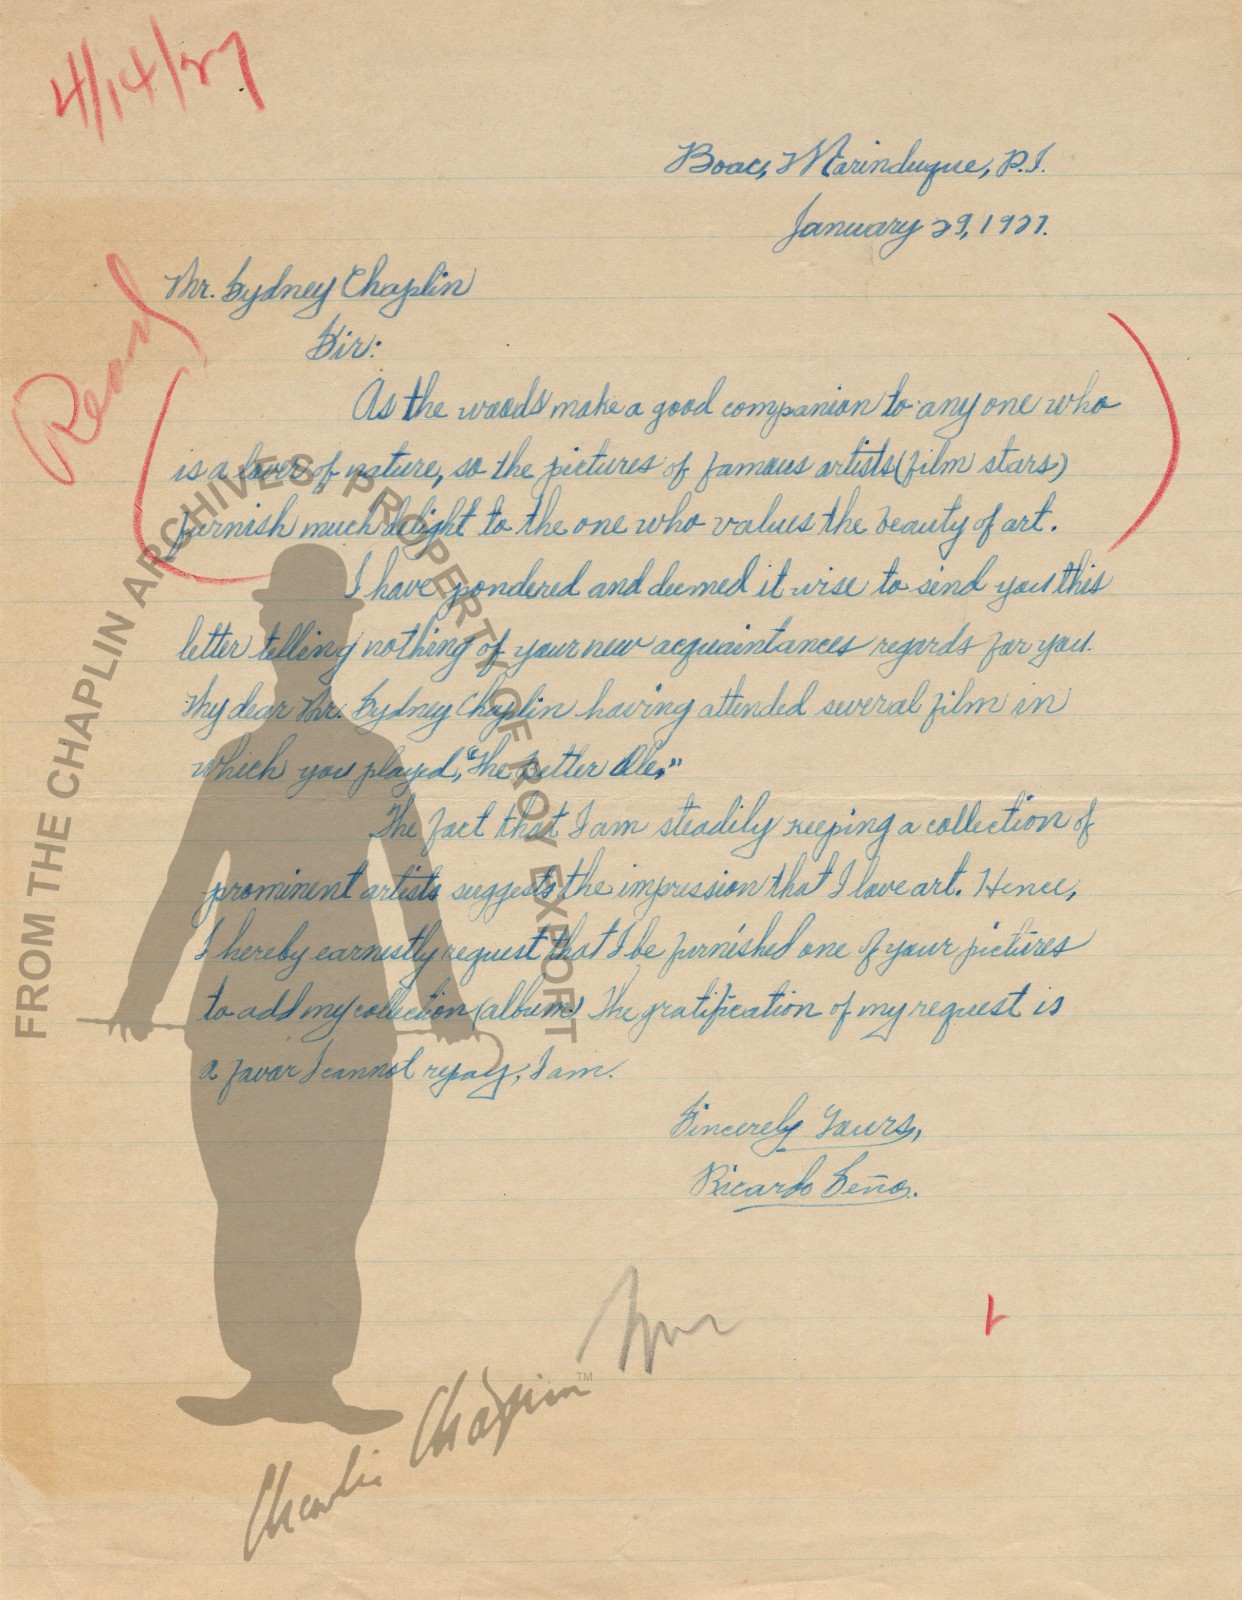 4/14/27
Boac, Marinduque, P.I.
January 29, 1927.
Read
Mr. Sydney Chaplin
Sir:
As the woods make a good companion to any one who
is a lover of nature, so the pictures of famous artists (film stars)
furnish much delight to the one who values the beauty of art.
I have pondered and deemed it wise to send you this
letter telling nothing of your new acquaintances regards for you.
My dear Mr. Sydney Chaplin having attended several film in
which you played, "The Better Ole."
The fact that I am steadily keeping a collection of
prominent artists suggests the impression that I love art. Hence,
I hereby earnestly request that I be furnished one of your pictures
to add my collection (album) The gratification of my request is
a favor I cannot repay, I am.
Sincerely Yours,
Ricardo Seño.
FROM THE CHAPLIN ARCHIVES PROPERTY OF ROY EXPORT
Charlie Chaplin TM